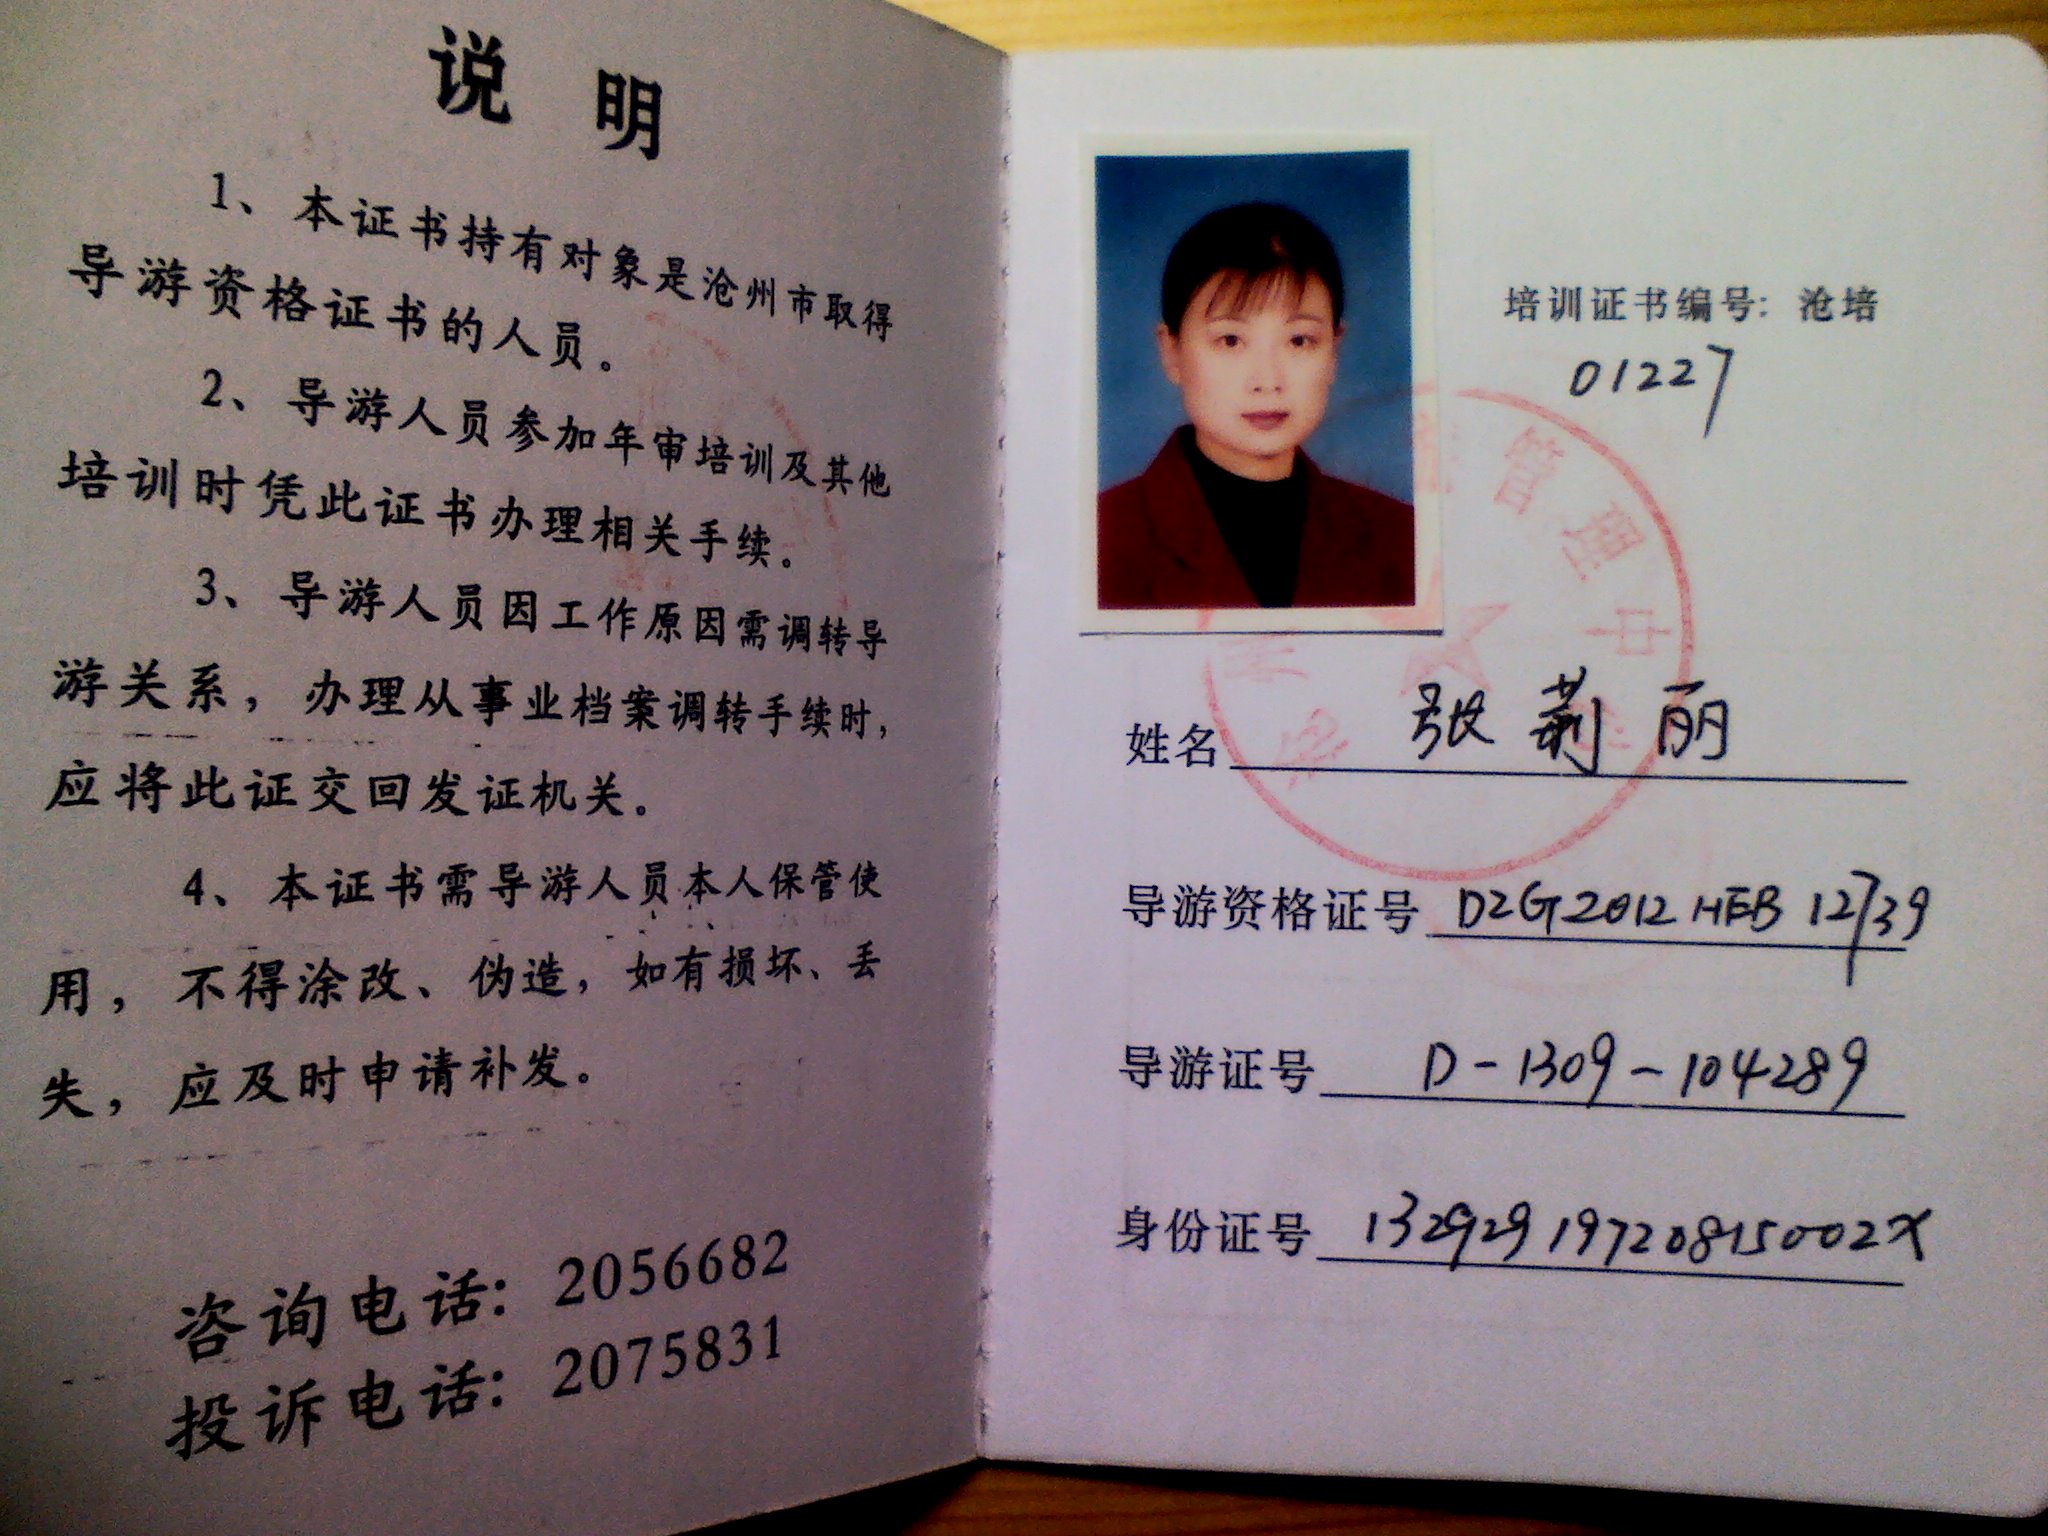 说 明
1、本证书持有对象是沧州市取得
导游资格证书的人员。
2、导游人员参加年审培训及其他
培训时凭此证书办理相关手续。
3、导游人员因工作原因需调转导
游关系，办理从事业档案调转手续时，
应将此证交回发证机关。
4、本证书需导游人员本人保管使
用，不得涂改、伪造，如有损坏、丢
失，应及时申请补发。
咨询电话：2056682
投诉电话：2075831
培训证书编号：沧培
01227
管理中
姓名 张莉丽
导游资格证号 DZG2012HEB12739
导游证号 D-1309-104289
身份证号 13292919720815002X